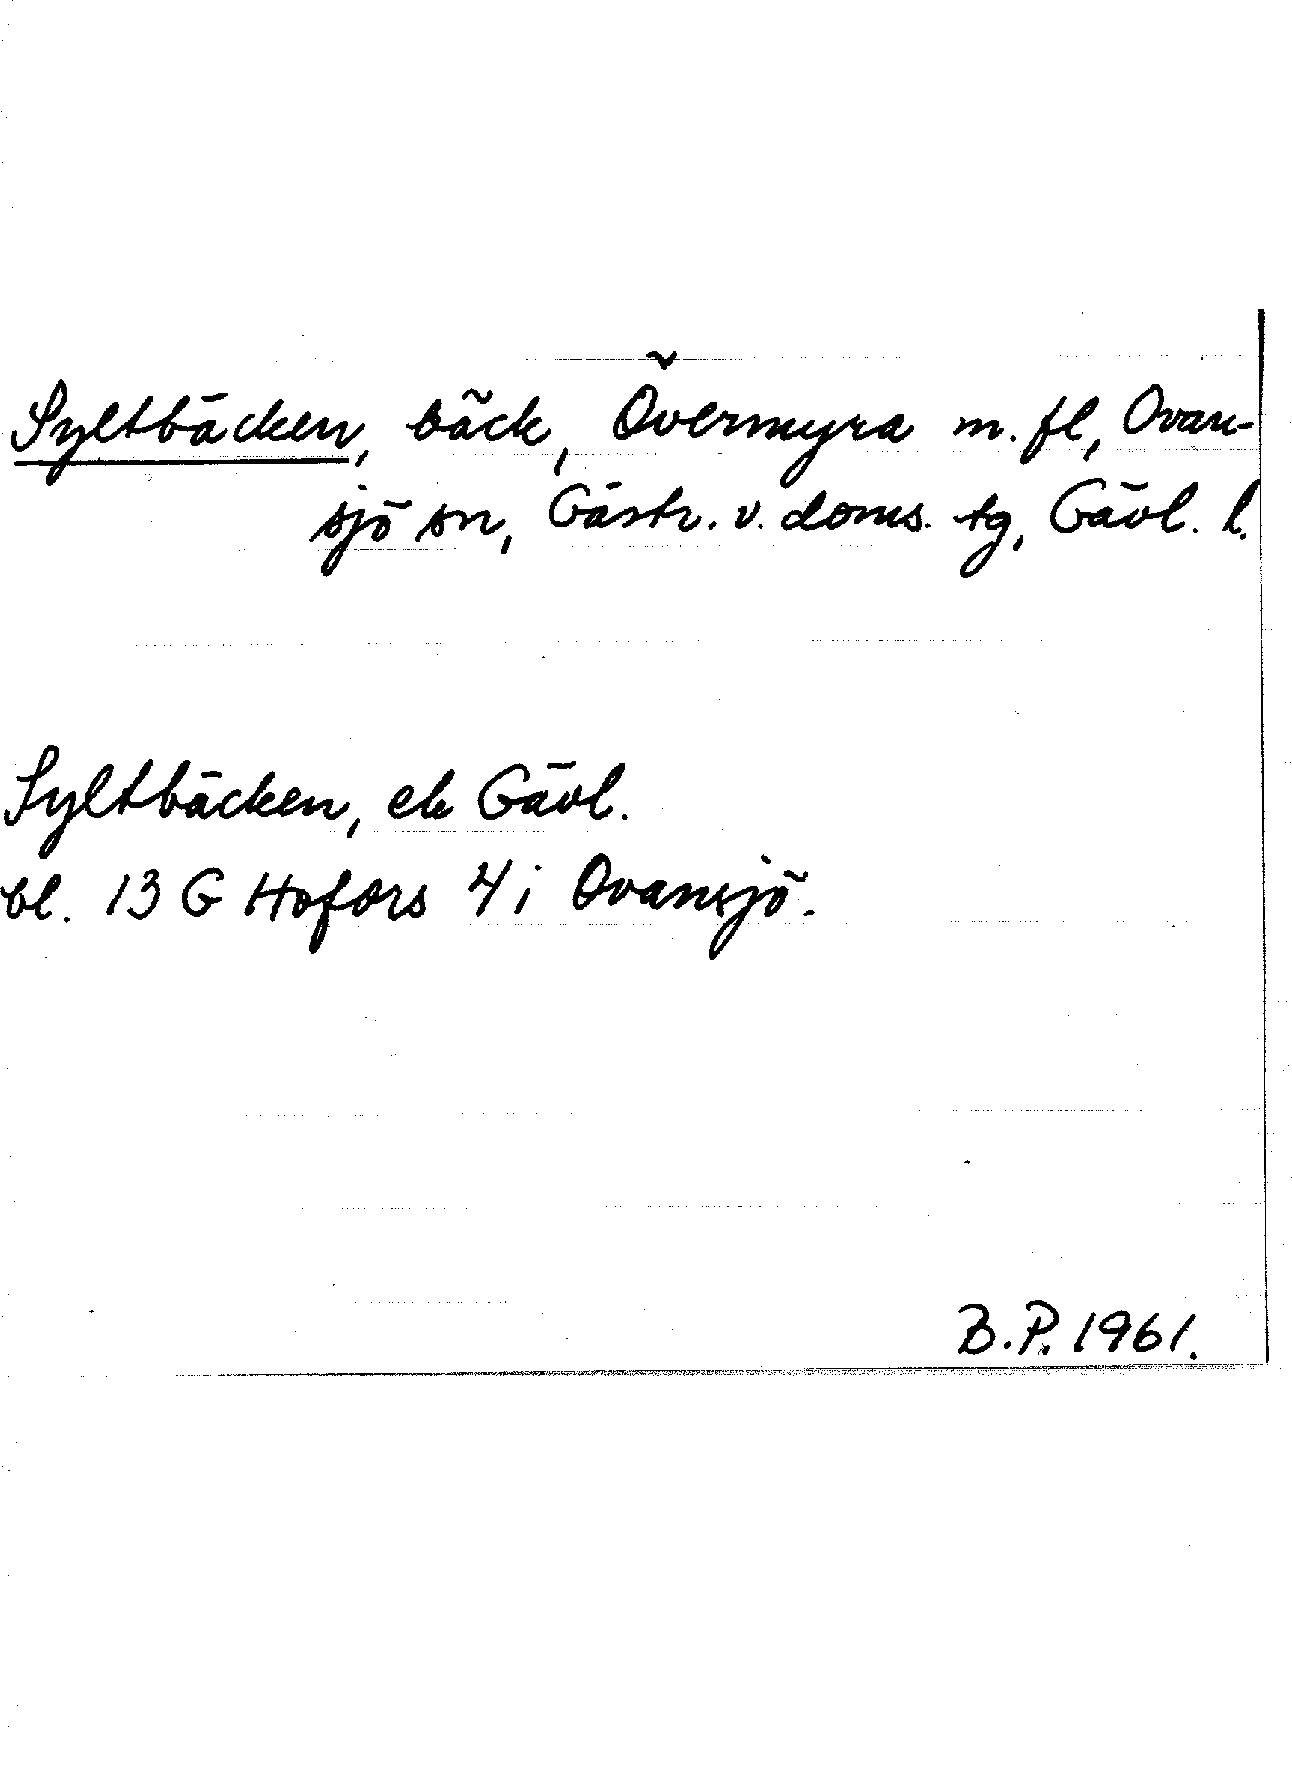 Syltbäcken, bäck, Övermyra m. fl, Ovan-
sjö sn, Gästr. v. doms. tg, Gävl. l.
Syltbäcken, ek Gävl.
bl. 13 G Hofors 4 i Ovansjö.
B.P. 1961.